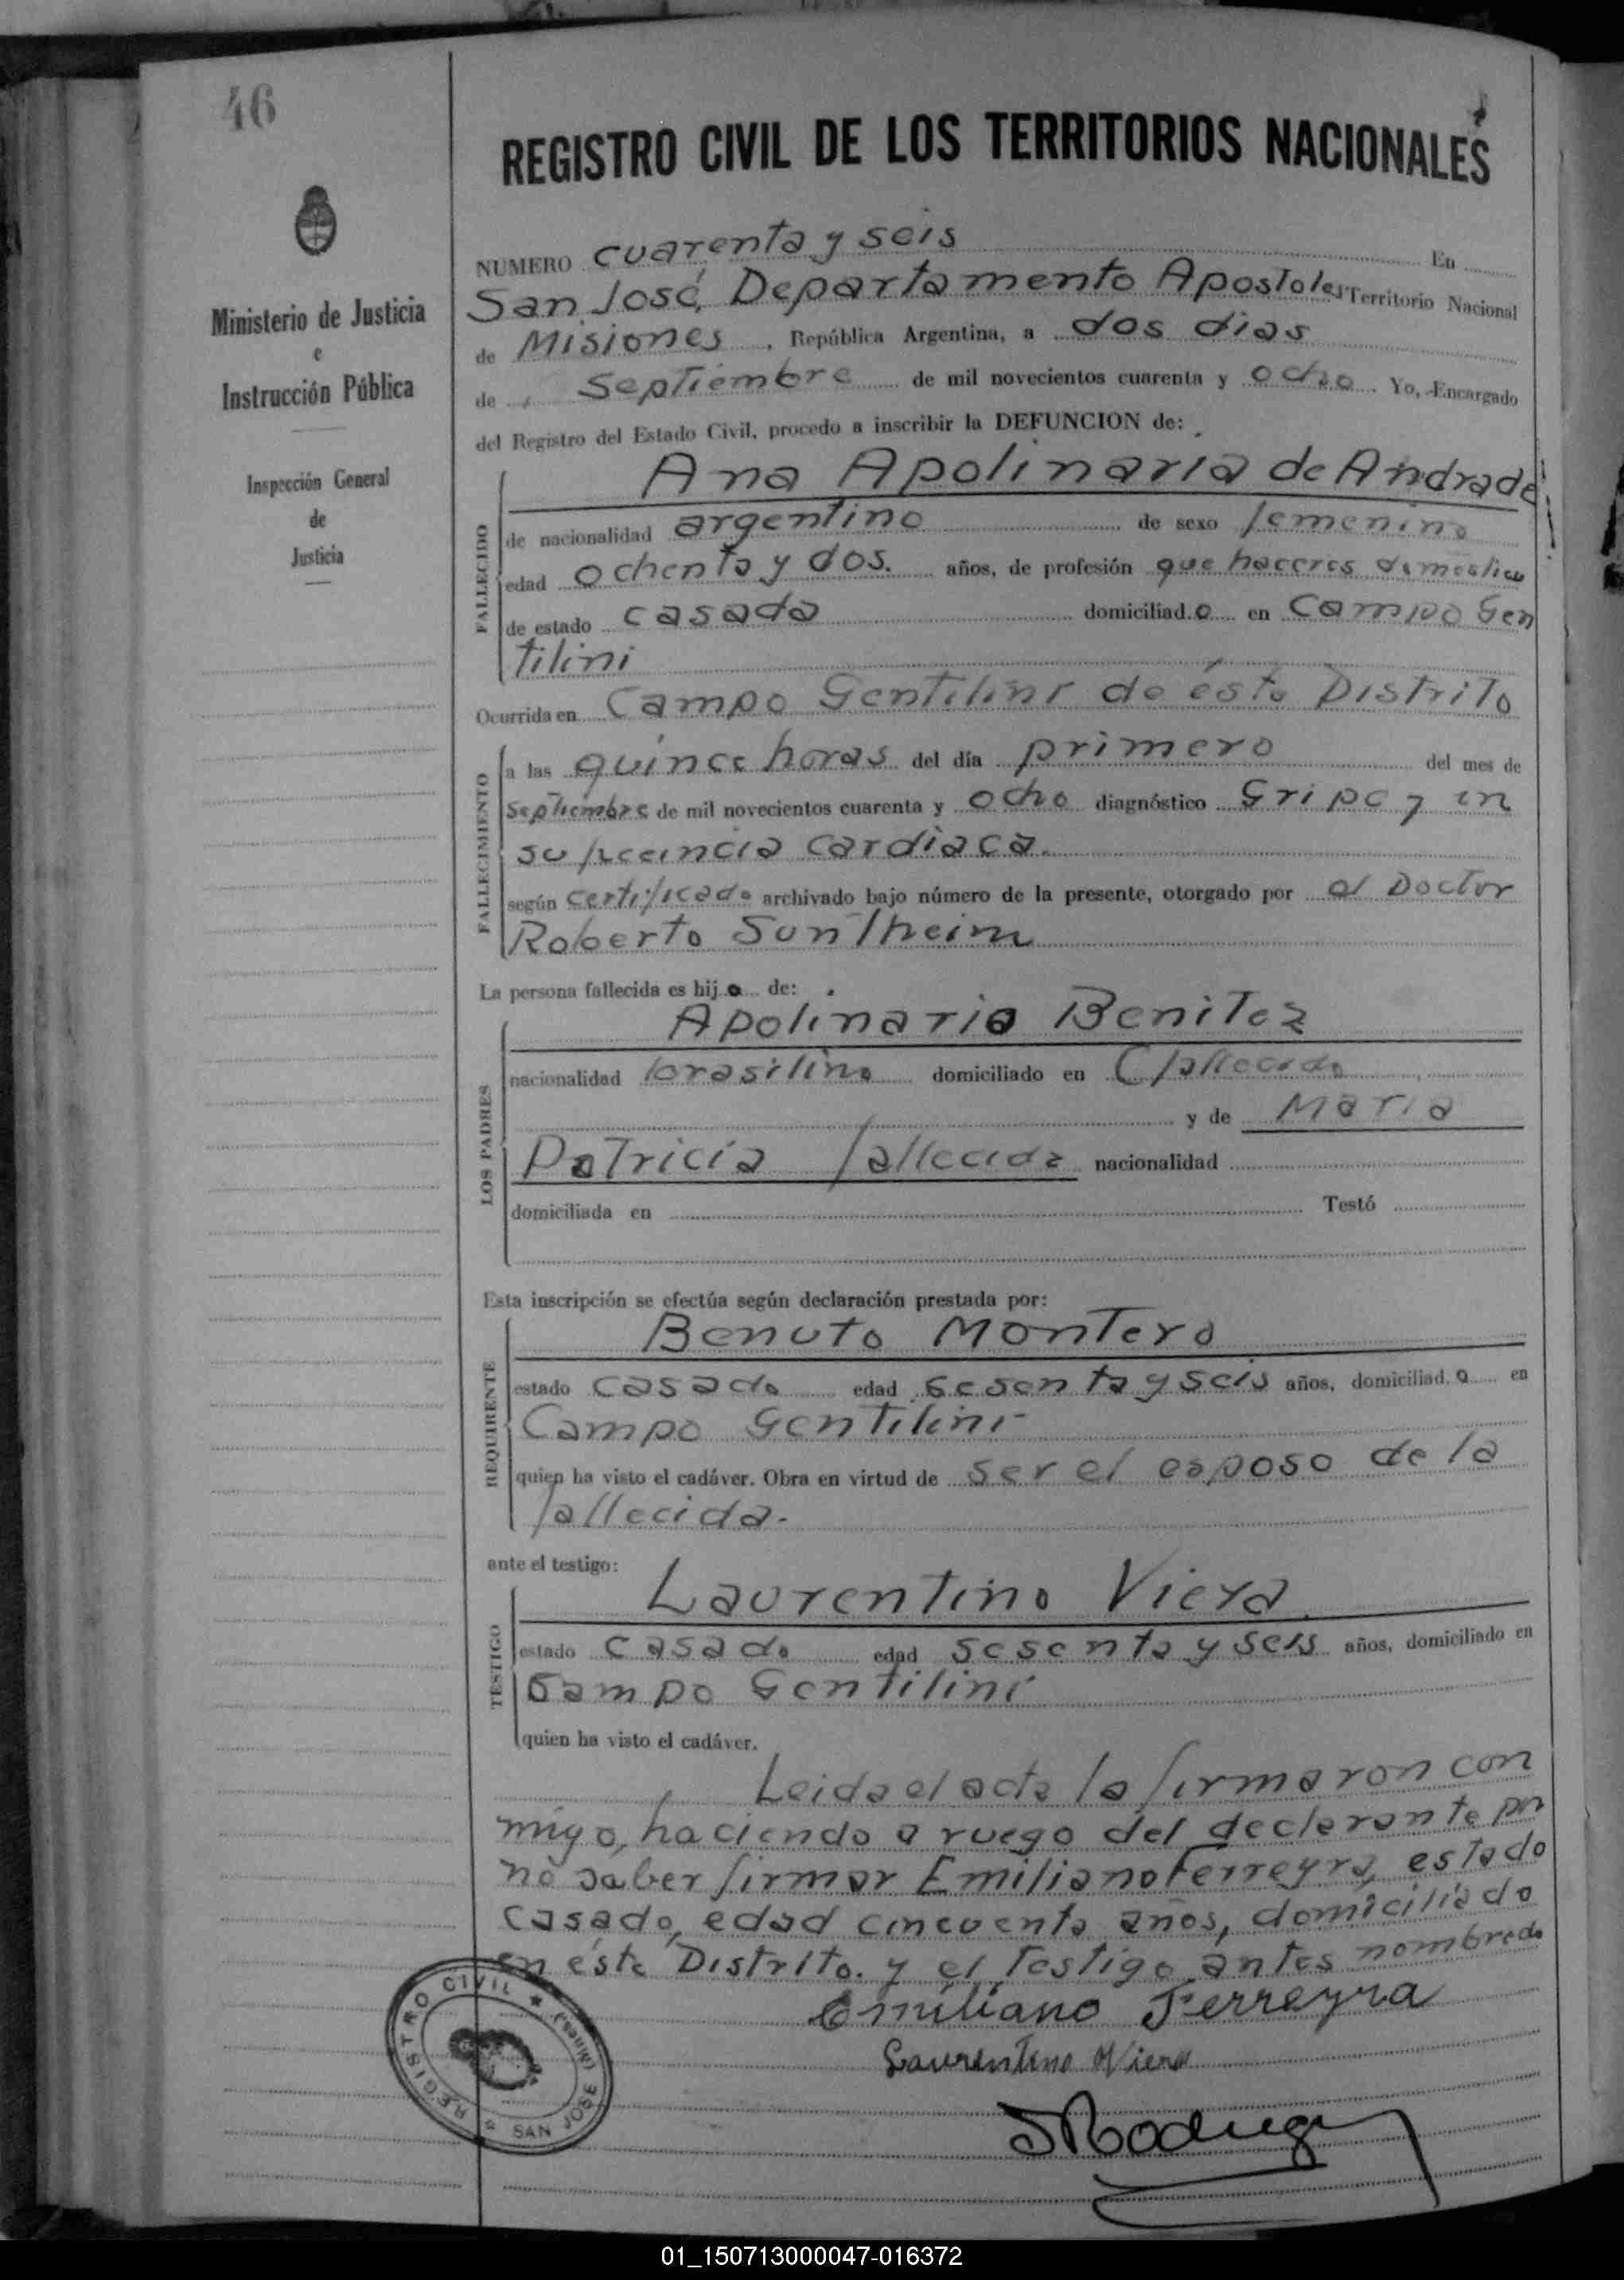 46
REGISTRO CIVIL DE LOS TERRITORIOS NACIONALES
Ministerio de Justicia
e
Instrucción Pública
Inspección General
de
Justicia
NUMERO cuarenta y seis En
San José, Departamento Apostoles Territorio Nacional
de Misiones, República Argentina, a dos dias
de Septiembre de mil novecientos cuarenta y ocho. Yo, Encargado
del Registro del Estado Civil, procedo a inscribir la DEFUNCION de:
Ana Apolinaria de Andrade
FALLECIDO
de nacionalidad argentino de sexo femenino
edad ochenta y dos. años, de profesión que haceres domestico
de estado casada domiciliad.o en Campo Gen
tilini
Ocurrida en Campo Gentilini de éste Distrito
FALLECIMIENTO
a las quince horas del día primero del mes de
Septiembre de mil novecientos cuarenta y ocho diagnóstico Gripe y in
suficcincia cardiaca.
según certificado archivado bajo número de la presente, otorgado por el Doctor
Roberto Suntheim
La persona fallecida es hij.a de:
Apolinario Benitez
LOS PADRES
nacionalidad brasilino domiciliado en (fallecido
y de Maria
Patricia fallecida nacionalidad
domiciliada en Testó
Esta inscripción se efectúa según declaración prestada por:
Benuto Montero
REQUIRENTE
estado casado edad sesenta y seis años, domiciliad.o en
Campo Gentilini
quien ha visto el cadáver. Obra en virtud de ser el esposo de la
fallecida.
ante el testigo:
Laurentino Viera
TESTIGO
estado casado edad sesenta y seis años, domiciliado en
Campo Gentilini
quien ha visto el cadáver.
Leida el acta la firmaron con
migo, haciendo a ruego del declarante por
no saber firmar Emiliano Ferreyra, estado
casado, edad cincuenta años, domiciliado
en éste Distrito. y el testigo antes nombrado
Emiliano Ferreyra
Laurentino Viera
REGISTRO CIVIL ★ (Mnes.) SAN JOSE ★
01_150713000047-016372